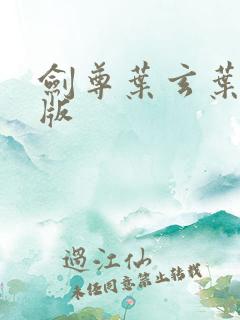 劍尊葉玄葉
版
過江仙
未经同意禁止转载